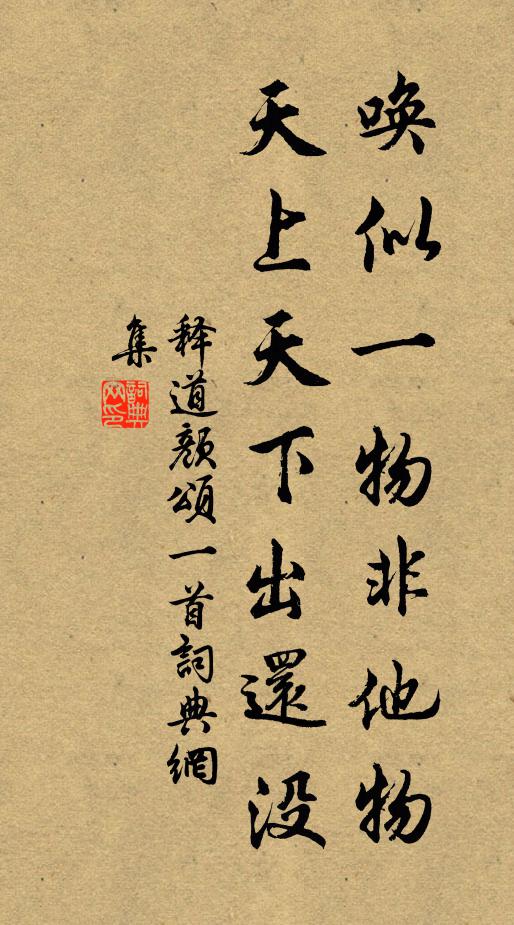 唤似一物非他物
天上天下出還没
释道颜頌一首詞典網
集
詞典网印